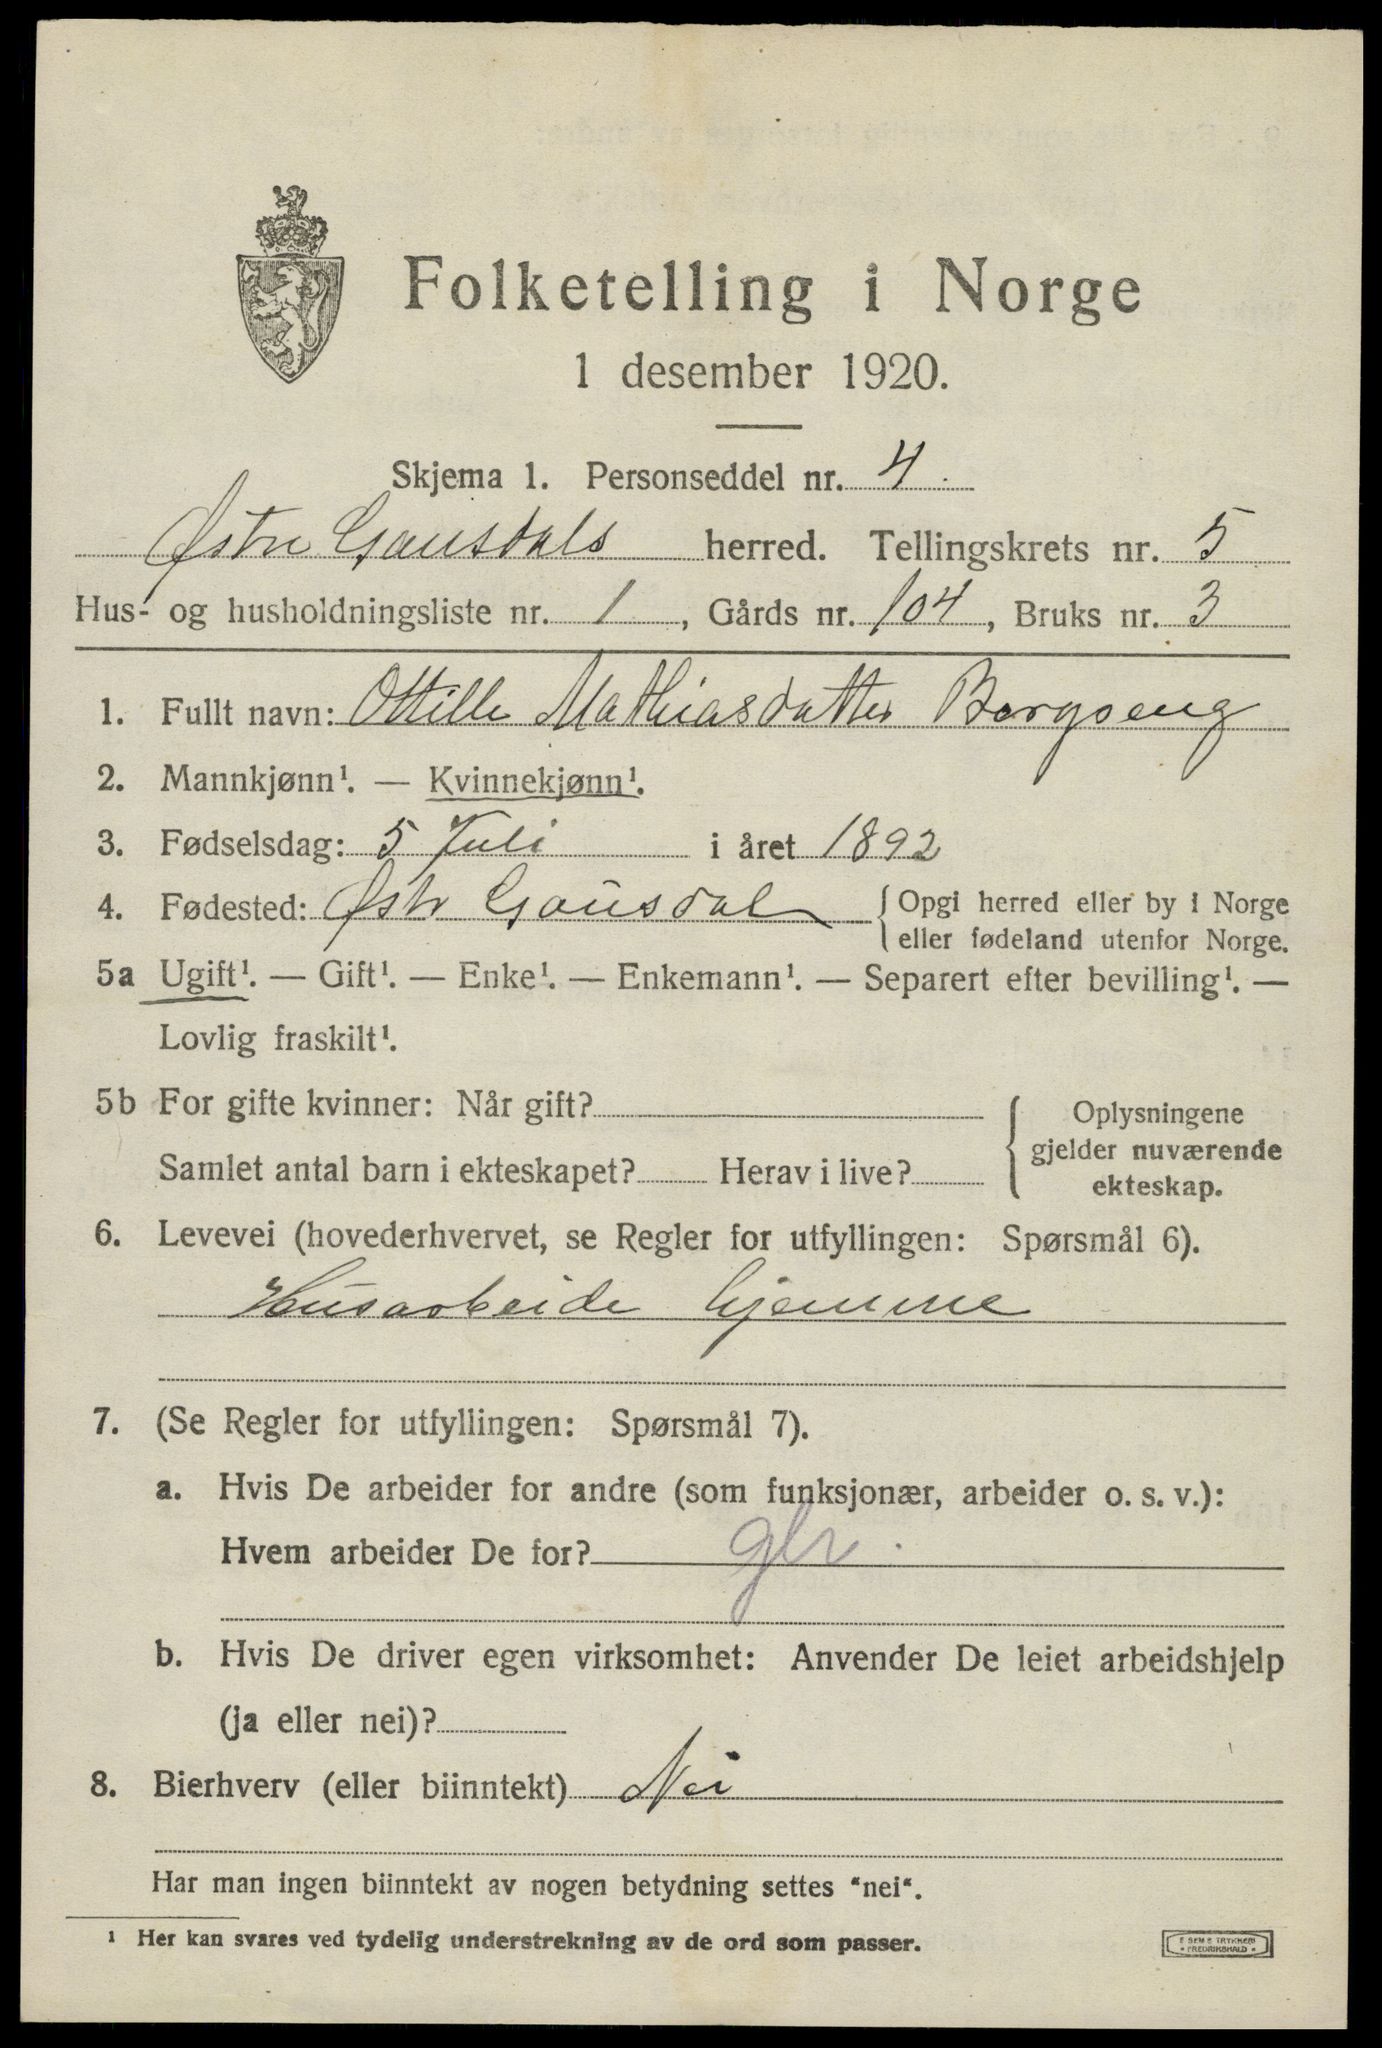 Folketelling i Norge
1 desember 1920.
Skjema 1. Personseddel nr. 4.
Østre Gausdals herred. Tellingskrets nr. 5
Hus- og husholdningsliste nr. 1, Gårds nr. 104, Bruks nr. 3
1. Fullt navn: Ottille Mathiasdatter Bergseng
2. Mannkjønn¹. — Kvinnekjønn¹.
3. Fødselsdag: 5 Juli i året 1892
4. Fødested: Østr Gausdal { Opgi herred eller by i Norge
eller fødeland utenfor Norge.
5a Ugift¹. — Gift¹. — Enke¹. — Enkemann¹. — Separert efter bevilling¹. —
Lovlig fraskilt¹.
5b For gifte kvinner: Når gift?
Samlet antal barn i ekteskapet? Herav i live?
{ Oplysningene
gjelder nuværende
ekteskap.
6. Levevei (hovederhvervet, se Regler for utfyllingen: Spørsmål 6).
Husarbeide hjemme
7. (Se Regler for utfyllingen: Spørsmål 7).
a. Hvis De arbeider for andre (som funksjonær, arbeider o. s. v.):
Hvem arbeider De for?
b. Hvis De driver egen virksomhet: Anvender De leiet arbeidshjelp
(ja eller nei)?
8. Bierhverv (eller biinntekt) Nei
Har man ingen biinntekt av nogen betydning settes "nei".
¹ Her kan svares ved tydelig understrekning av de ord som passer.
FREDRIKSHALD